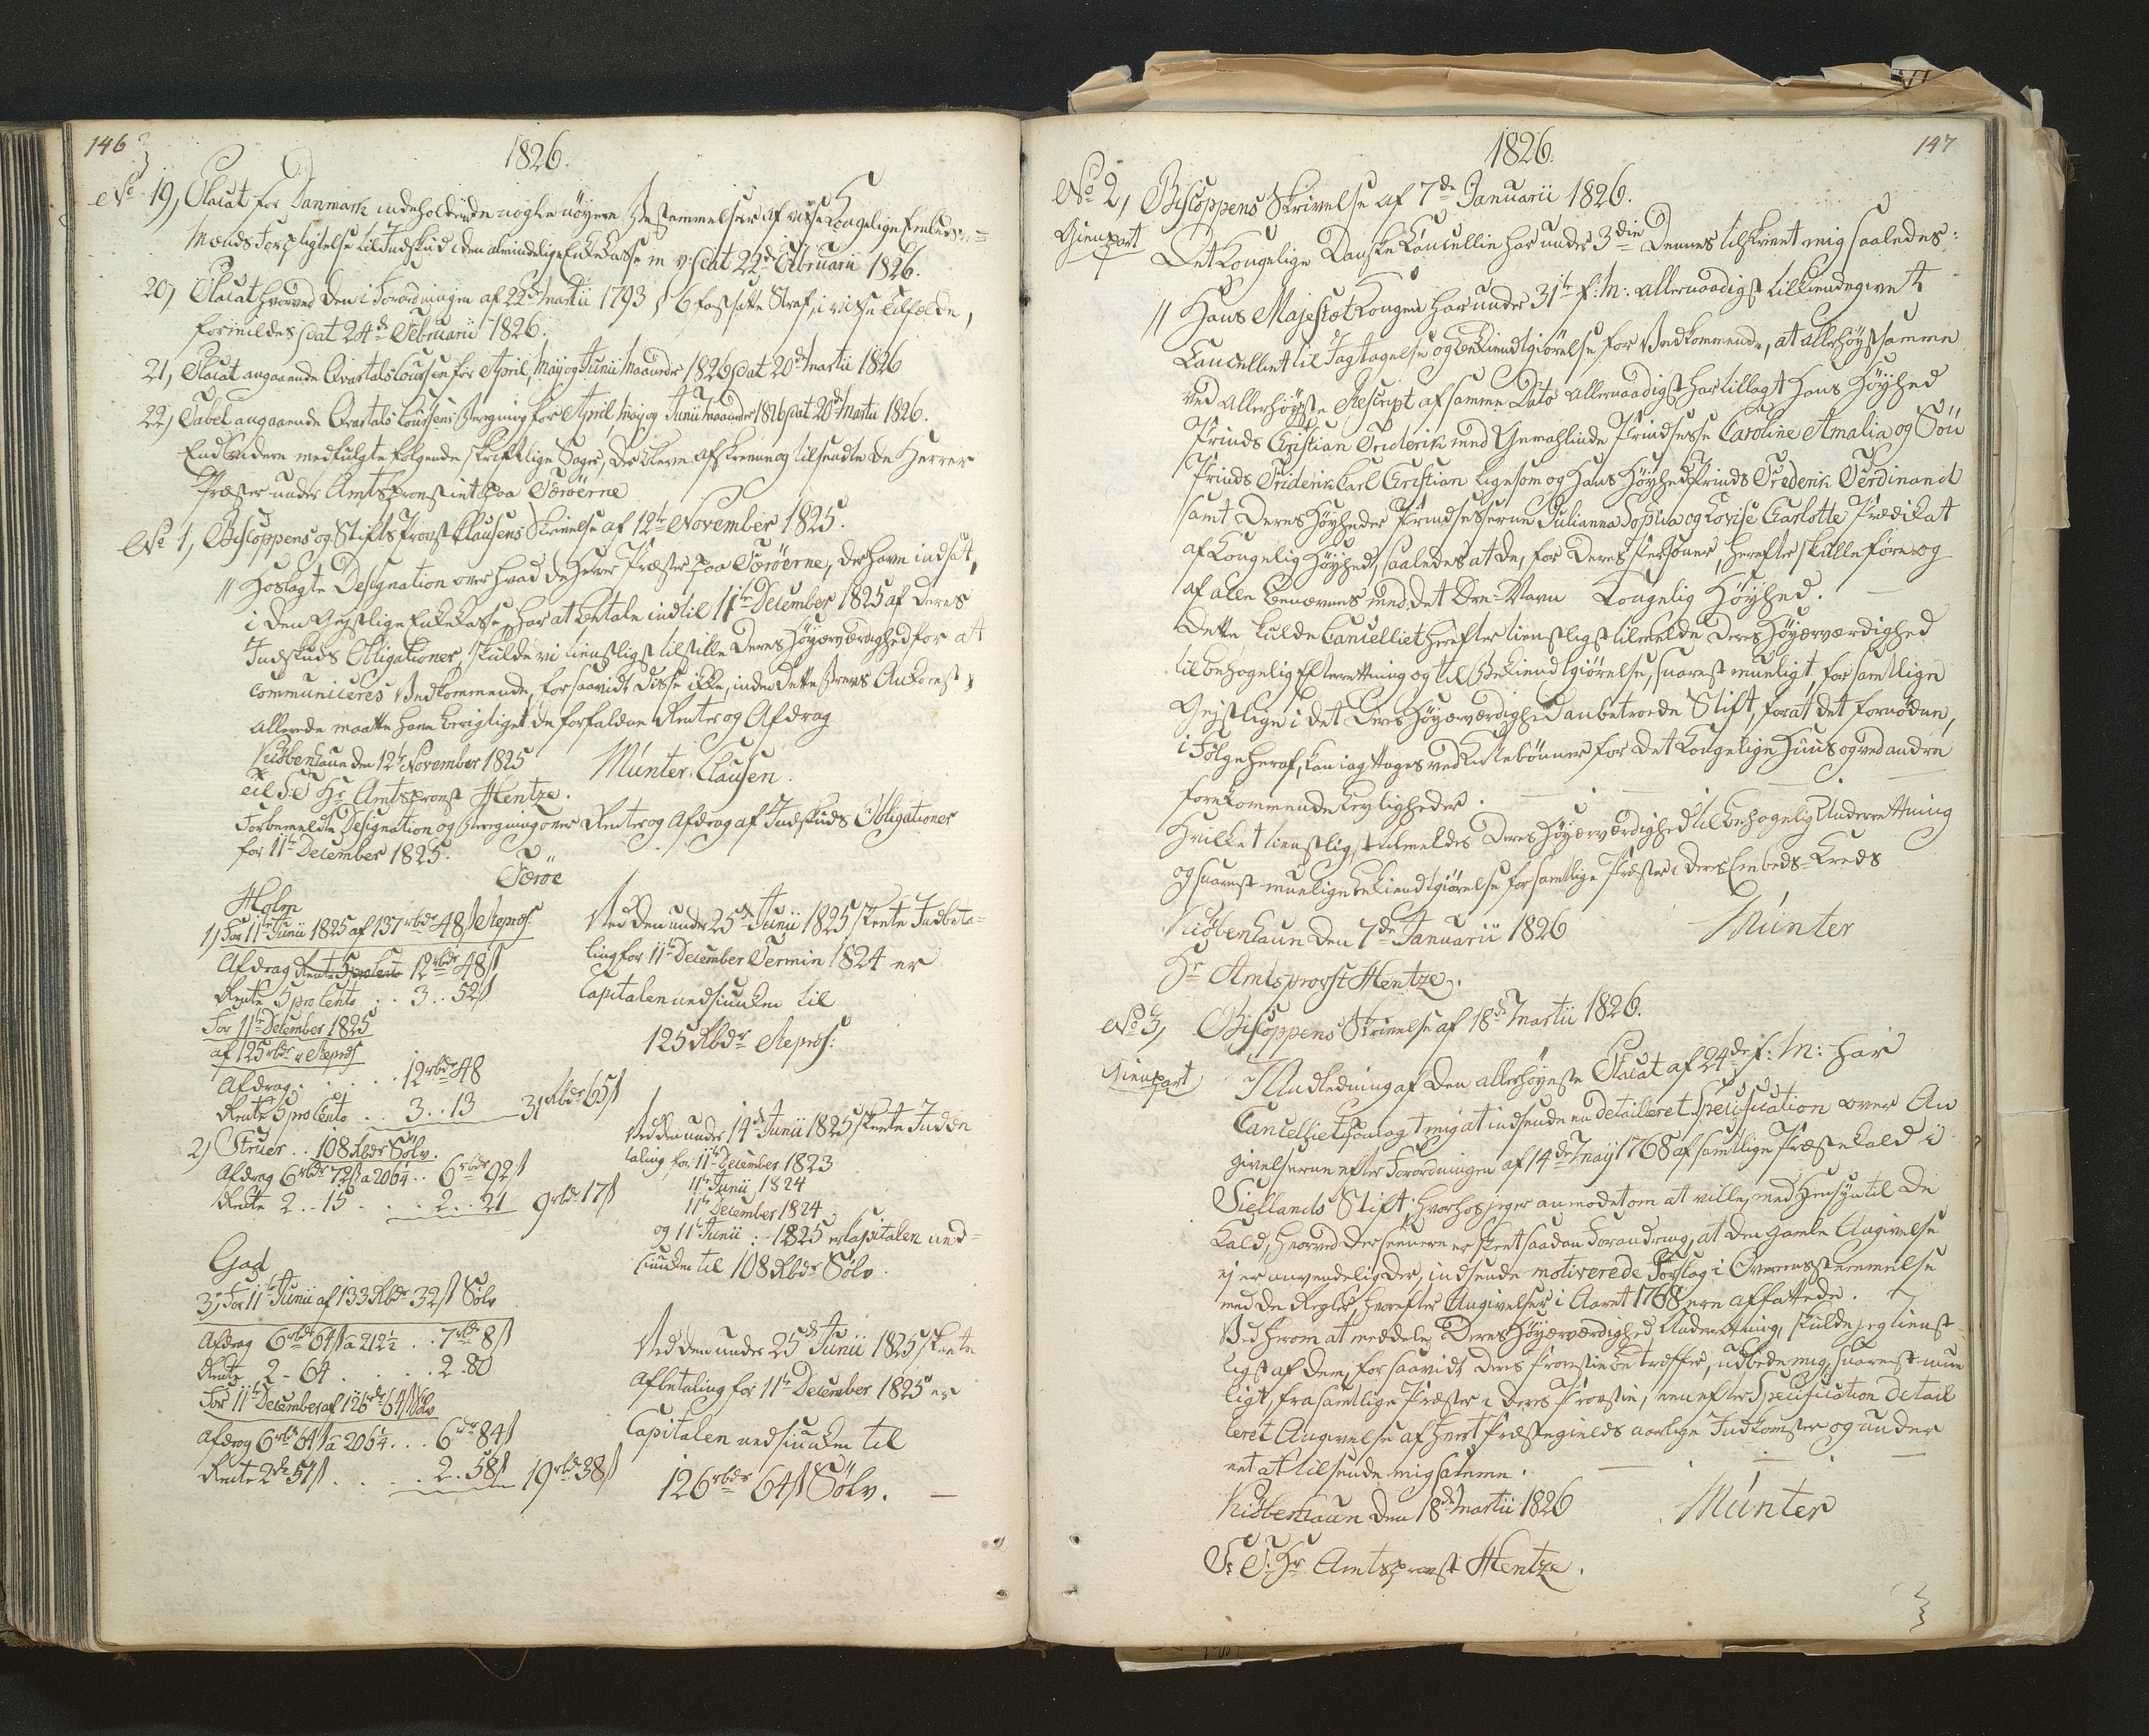 146
1826.
No 19, Placat for Danmark indeholdende nogle nöyere Bestemmelser af visse Kongelige Embeds=
Mænds Forpligtelse til Indskud i den almindelige Enkekasse m. v. dat 22de Februarii 1826.
20, Placat hvorved den i Forordningen af 22de Martii 1793 § 6 fastsatte Straf, i visse Tilfælde,
formildes dat 24de Februarii 1826.
21, Placat angaaende Qvartals Coursen for April, May og Junii Maaneder 1826 dat 20de Martii 1826
22, Tabel angaaende Qvartals Coursens Beregning for April, May og Junii Maaneder 1826 dat 20de Martii 1826.
Endvidere medfulgte følgende skriftlige Sager, der bleve afskrevne og tilsendte de Herrer
Præster under Amtsprovstiet paa Færöerne
No 1, Biscoppens og StiftsProvst Clausens Skrivelse af 12te November 1825.
// Hoslagte Designation over hvad de Herrer Præster paa Færöerne, der have indsat,
i den Gejstlige Enkekasse, har at betale indtil 11te December 1825 af deres
Indskuds Obligationer, skulde vi tienstligst tilstille Deres Höyærværdighed for at
communiceres Vedkommende, forsaavidt disse ikke, inden dette Brevs Ankomst,
allerede maatte have berigtiget de forfaldne Renter og Afdrag
Kiöbenhavn den 12te November 1825
Münter. Clausen.
Til S. T. Hr Amtsprovst Hentze.
Forbemeldte Designation og Beregning over Renter og Afdrag af Indskuds Obligationer
for 11te December 1825.
Færöe
Holm
1, For 11te Junii 1825 af 137 rbdr 48 ß Repræs.
Afdrag Rente 5 procento 12 rbdr 48 ß
Rente 5 procento . . 3 . . 52 ß
For 11te December 1825
af 125 rbdr Repræs
Afdrag . . . . . 12 rbdr 48
Rente 5 procento . . 3 . . 13 31 Rbdr 65 ß
Ved den under 25de Junii 1825 skeete Indbeta=
ling for 11te December Termin 1824 er
Capitalen nedsiunken til
125 Rbdr Repræs:
2, Struer . . 108 Rbdr Sölv.
Afdrag 6 rbdr 72 ß a 206¼ . . 6 rbdr 92 ß
Rente 2 . . 15 . . . . 2 . . 21 9 rbdr 17 ß
Ved den under 14de Junii 1825 skeete Indbe
taling for 11te December 1823
11te Junii 1824
11te December 1824
og 11te Junii . . 1825 er Capitalen ned=
siunken til 108 Rbdr Sölv.
Gad
3, For 11te Junii af 133 Rbdr 32 ß Sölv
Afdrag 6 rbdr 64 ß a 212½ . . 7 rbdr 8 ß
Rente 2 - 64 . . . . . 2 . 80
For 11te December af 126 rbdr 64 ß Sölv
Afdrag 6 rbdr 64 ß a 206¼ . . . 6 rdr 84 ß
Rente 2 rdr 51 ß . . . . . 2 . 58 ß 19 rbdr 38 ß
Ved den under 25de Junii 1825 skeete
Afbetaling for 11te December 1825 er
Capitalen nedsiunken til
126 rbdr 64 ß Sölv. —
147
1826.
No 2, Biscoppens Skrivelse af 7de Januarii 1826.
Gienpart
Det Kongelige Danske Cancellie har under 3die Dennes tilskrevet mig saaledes:
// Hans Majestæt Kongen har under 31te f: M: allernaadigst tilkiendegivet
Cancelliet til Iagttagelse og Bekiendtgiörelse for Vedkommende, at allerhöystsamme
ved allerhöyeste Rescript af samme Dato allernaadigst har tillagt Hans Höyhed
Prinds Christian Friderik med Gemahlinde Prindsesse Caroline Amalia og Sön
Prinds Friderik Carl Christian ligesom og Hans Höyhed Prinds Frederik Ferdinand
samt Deres Höyheder Prindsesserne Juliana Sophia og Lovise Charlotte Prædikat
af Kongelig Höyhed, saaledes at de, for deres Personer, herefter skulle före og
af alle benævnes med det Ære-Navn Kongelig Höyhed. —
Dette skulde Cancelliet herefter tienstligst tilmelde Deres Höyærværdighed
til behagelig Efterretning og til Bekiendtgiörelse, snarest mueligt, for samtlige
Gejstlige i det Deres Höyærværdighed anbetroede Stift, for at det fornödne,
i Fölge heraf, kan iagttages ved Kirkebönner for det Kongelige Huus og ved andre
forekommende Leyligheder. —
Hvilket tienstligst tilmeldes Deres Höyærværdighed til behagelig Underretning
og snarest muelige Bekiendtgiörelse for samtlige Præster i deres Embeds-Kreds
Kiöbenhavn den 7de Januarii 1826
Münter
Hr Amtsprovst Hentze.
No 3, Biscoppens Skrivelse af 18de Martii 1826.
Gienpart
I Anledning af den allerhöyeste Placat af 24de f: M: har
Cancelliet paalagt mig at indsende en detailleret Specification over An
givelserne efter Forordningen af 14de May 1768 af samtlige Præstekald i
Siellands Stift, hvorhos jeg er anmodet om at ville, med Hensyn til de
Kald, hvorved der senere er skeet saadan Forandring, at den gamle Angivelse
ej er anvendelig der, indsende motiverede Forslag i Overensstemmelse
med de Regler, hvorefter Angivelser i Aaret 1768 ere affattede.
Ved herom at meddele Deres Höyærværdighed Underretning, skulde jeg tienst
ligst af Dem, for saavidt Deres Provstie betræffer, udbede mig, snarest mue
ligt, fra samtlige Præster i Deres Provstie, een efter Specification detail
leret Angivelse af hvert Præstegields aarlige Indkomster og under
eet at tilsende mig samme. —
Kiöbenhavn den 18de Martii 1826
Münter
S. T. Hr Amtsprovst Hentze.